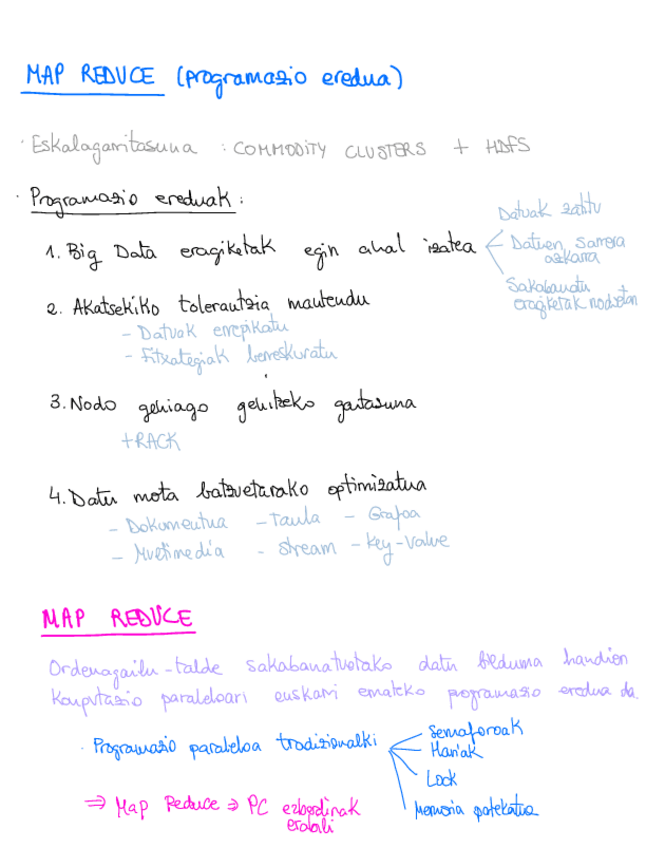 MAP REDUCE (programazio eredua)
· Eskalagarritasuna : COMMODITY CLUSTERS + HDFS
· Programazio ereduak :
1. Big Data eragiketak egin ahal izatea
Datuak zatitu
Datuen sarrera azkarra
Sakabanatu eragiketak nodotan
2. Akatsekiko tolerantzia mantendu
- Datuak errepikatu
- Fitxategiak berreskuratu
3. Nodo gehiago gehitzeko gaitasuna
+RACK
4. Datu mota batzuetarako optimizatua
- Dokumentua - Taula - Grafoa
- Multimedia - Stream - Key-Value
MAP REDUCE
Ordenagailu-talde sakabanatuetako datu bilduma handien
konputazio paraleloari euskarri emateko programazio eredua da.
· Programazio paraleloa tradizionalki
Semaforoak
Hariak
Lock
Memoria partekatua
⇒ Map Reduce ⇒ PC ezberdinak
erabili